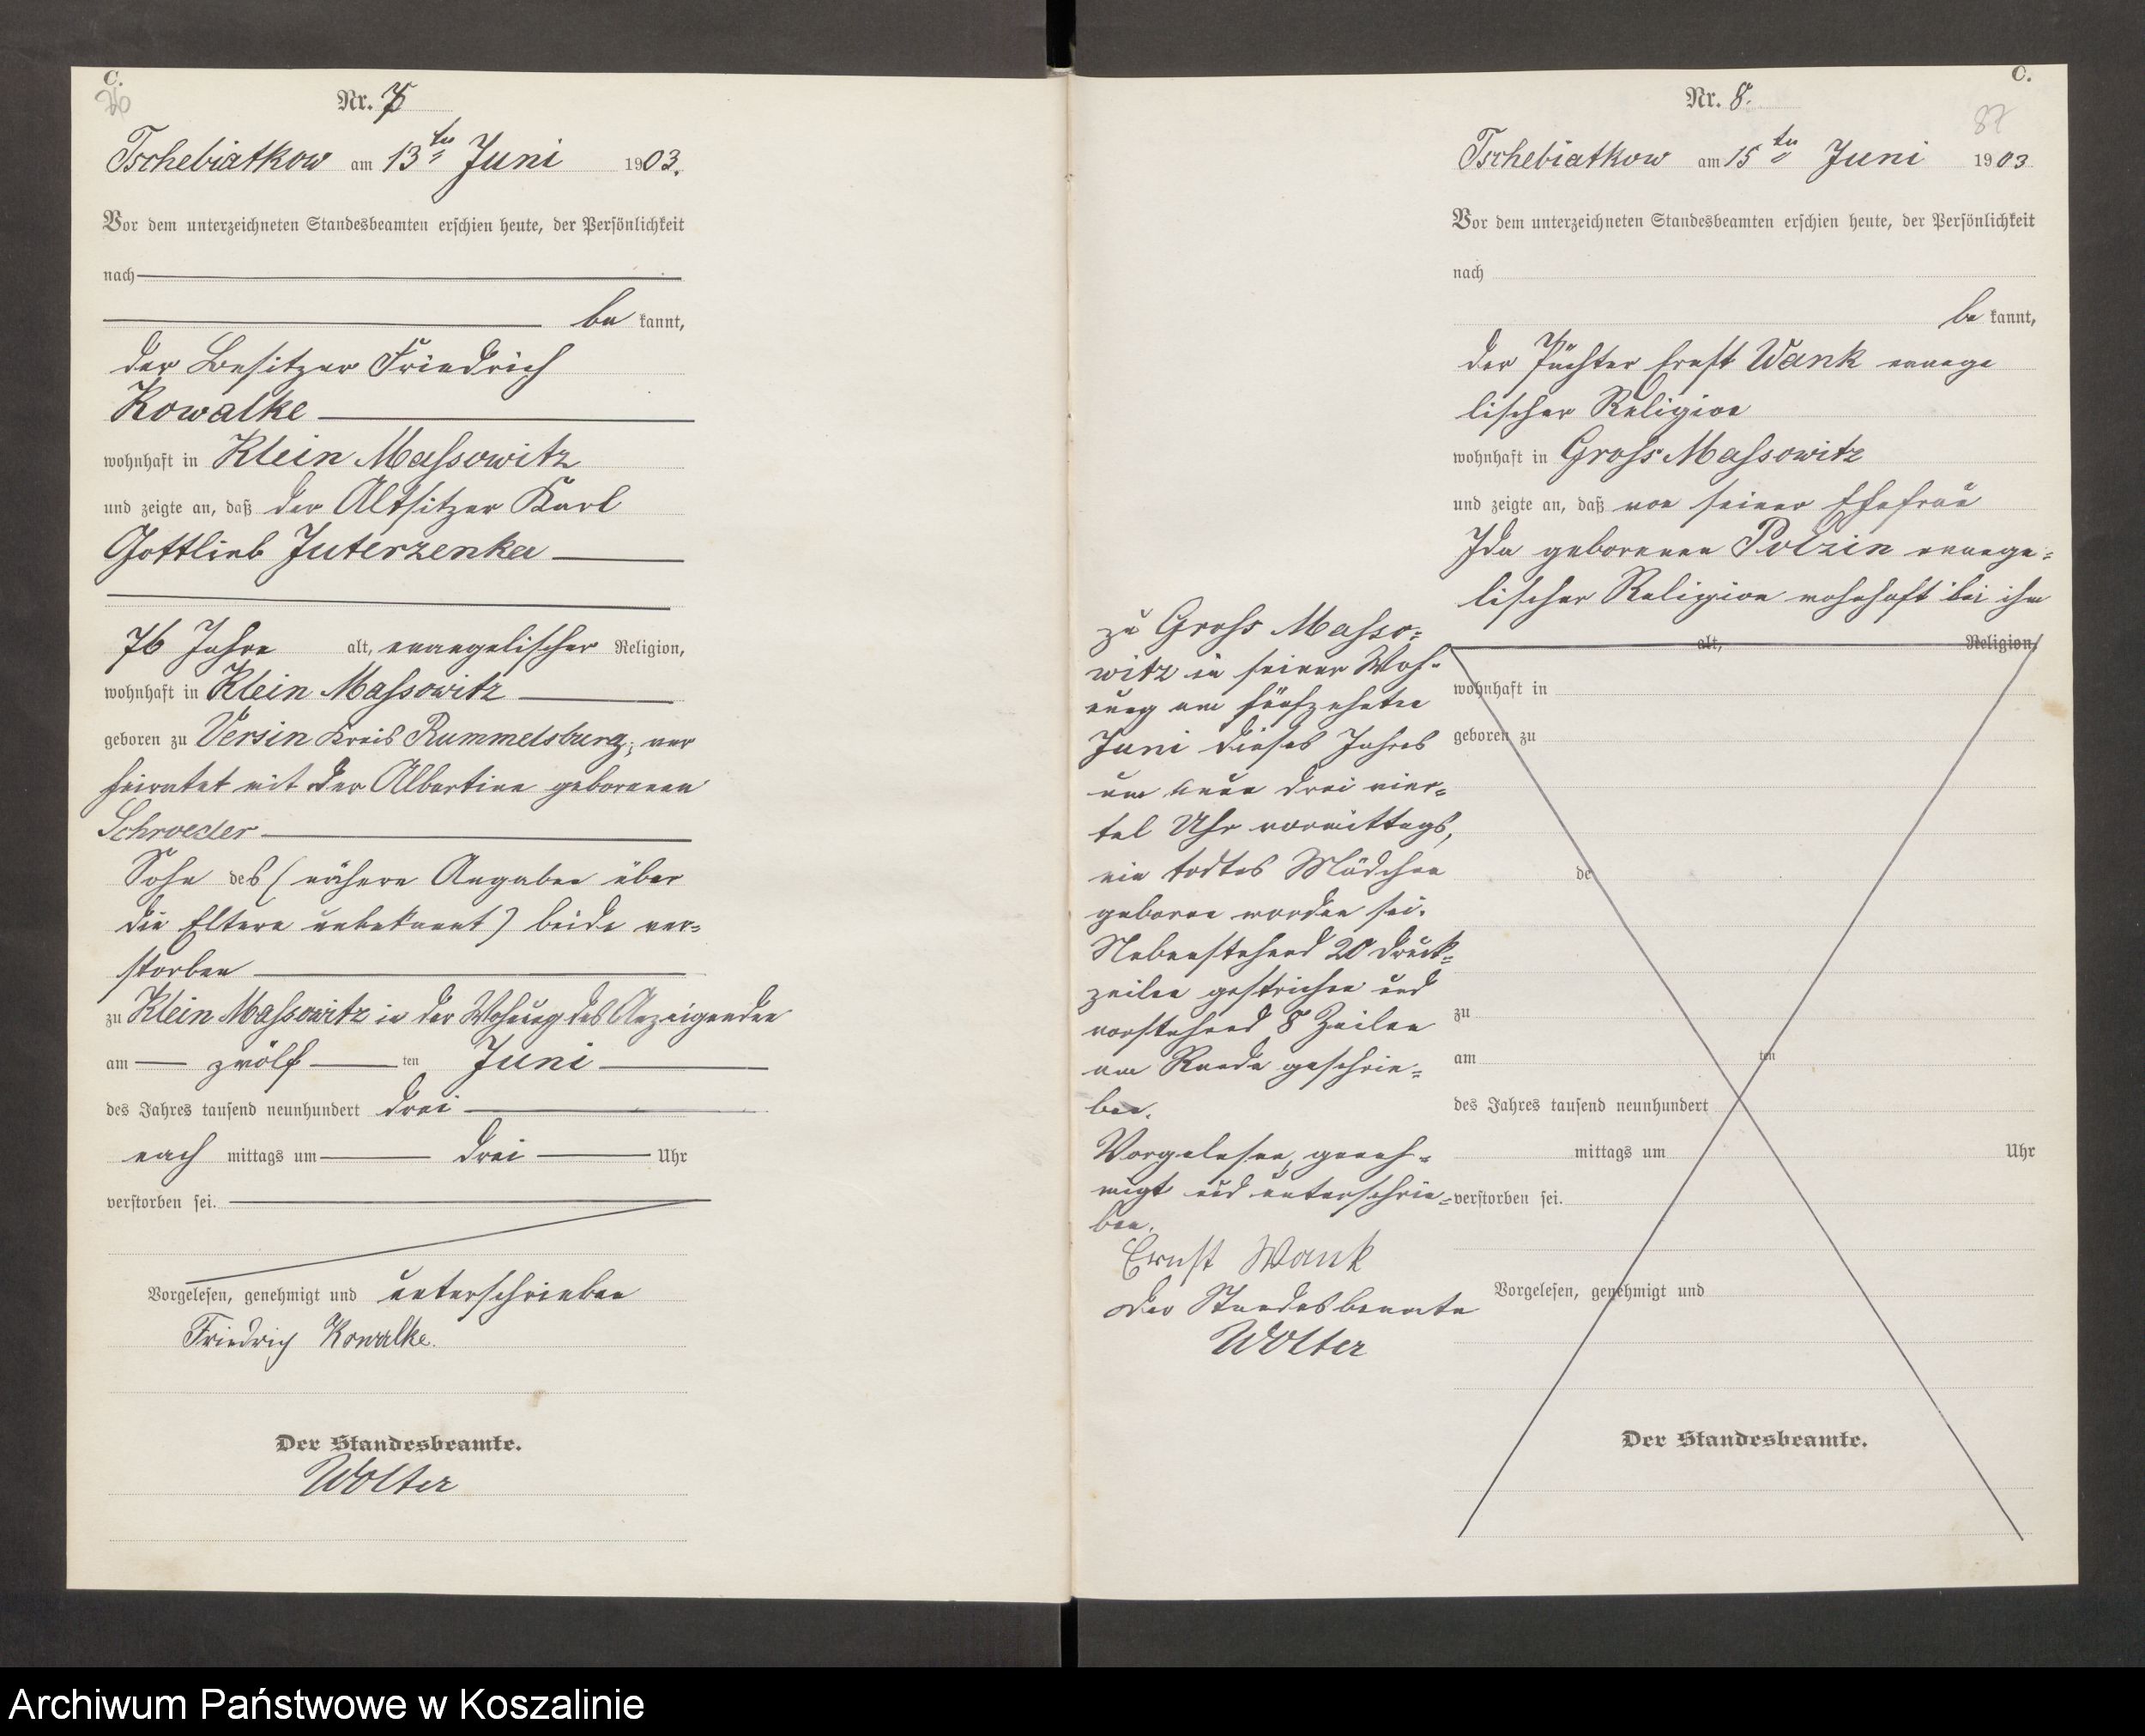 C.
Nr. 7
Tschebiatkow am 13ten Juni 1903.
Vor dem unterzeichneten Standesbeamten erschien heute, der Persönlichkeit
nach
be kannt,
der Besitzer Friedrich
Kowalke
wohnhaft in Klein Massowitz
und zeigte an, daß der Altsitzer Karl
Gottlieb Juterzenka
76 Jahre alt, evangelischer Religion,
wohnhaft in Klein Massowitz
geboren zu Versin Kreis Rummelsburg, ver
heiratet mit der Albertine geborenen
Schroeder
Sohn des (nähere Angaben über
die Eltern unbekannt) beide ver=
storben
zu Klein Massowitz in der Wohnung des Anzeigenden
am zwölf ten Juni
des Jahres tausend neunhundert drei
nach mittags um drei Uhr
verstorben sei.
Vorgelesen, genehmigt und unterschrieben
Friedrich Kowalke.
Der Standesbeamte.
Wolter
C.
Nr. 8.
87
Tschebiatkow am 15ten Juni 1903
Vor dem unterzeichneten Standesbeamten erschien heute, der Persönlichkeit
nach
be kannt,
der Pächter Ernst Wank evange
lischer Religion
wohnhaft in Gross Massowitz
und zeigte an, daß von seiner Ehefrau
Ida geborenen Polzin evange=
lischer Religion wohnhaft bei ihm
zu Gross Masso=
witz in seiner Woh=
nung am fünfzehnten
Juni dieses Jahres
um neun drei vier=
tel Uhr vormittags,
ein todtes Mädchen
geboren worden sei.
Nebenstehend 20 Druck=
zeilen gestrichen und
vorstehend 8 Zeilen
am Rande geschrie=
ben.
Vorgelesen, geneh=
migt und unterschrie=
ben.
Ernst Wank
Der Standesbeamte
Wolter
alt, Religion,
wohnhaft in
geboren zu
de
zu
am ten
des Jahres tausend neunhundert
mittags um Uhr
verstorben sei.
Vorgelesen, genehmigt und
Der Standesbeamte.
Archiwum Państwowe w Koszalinie